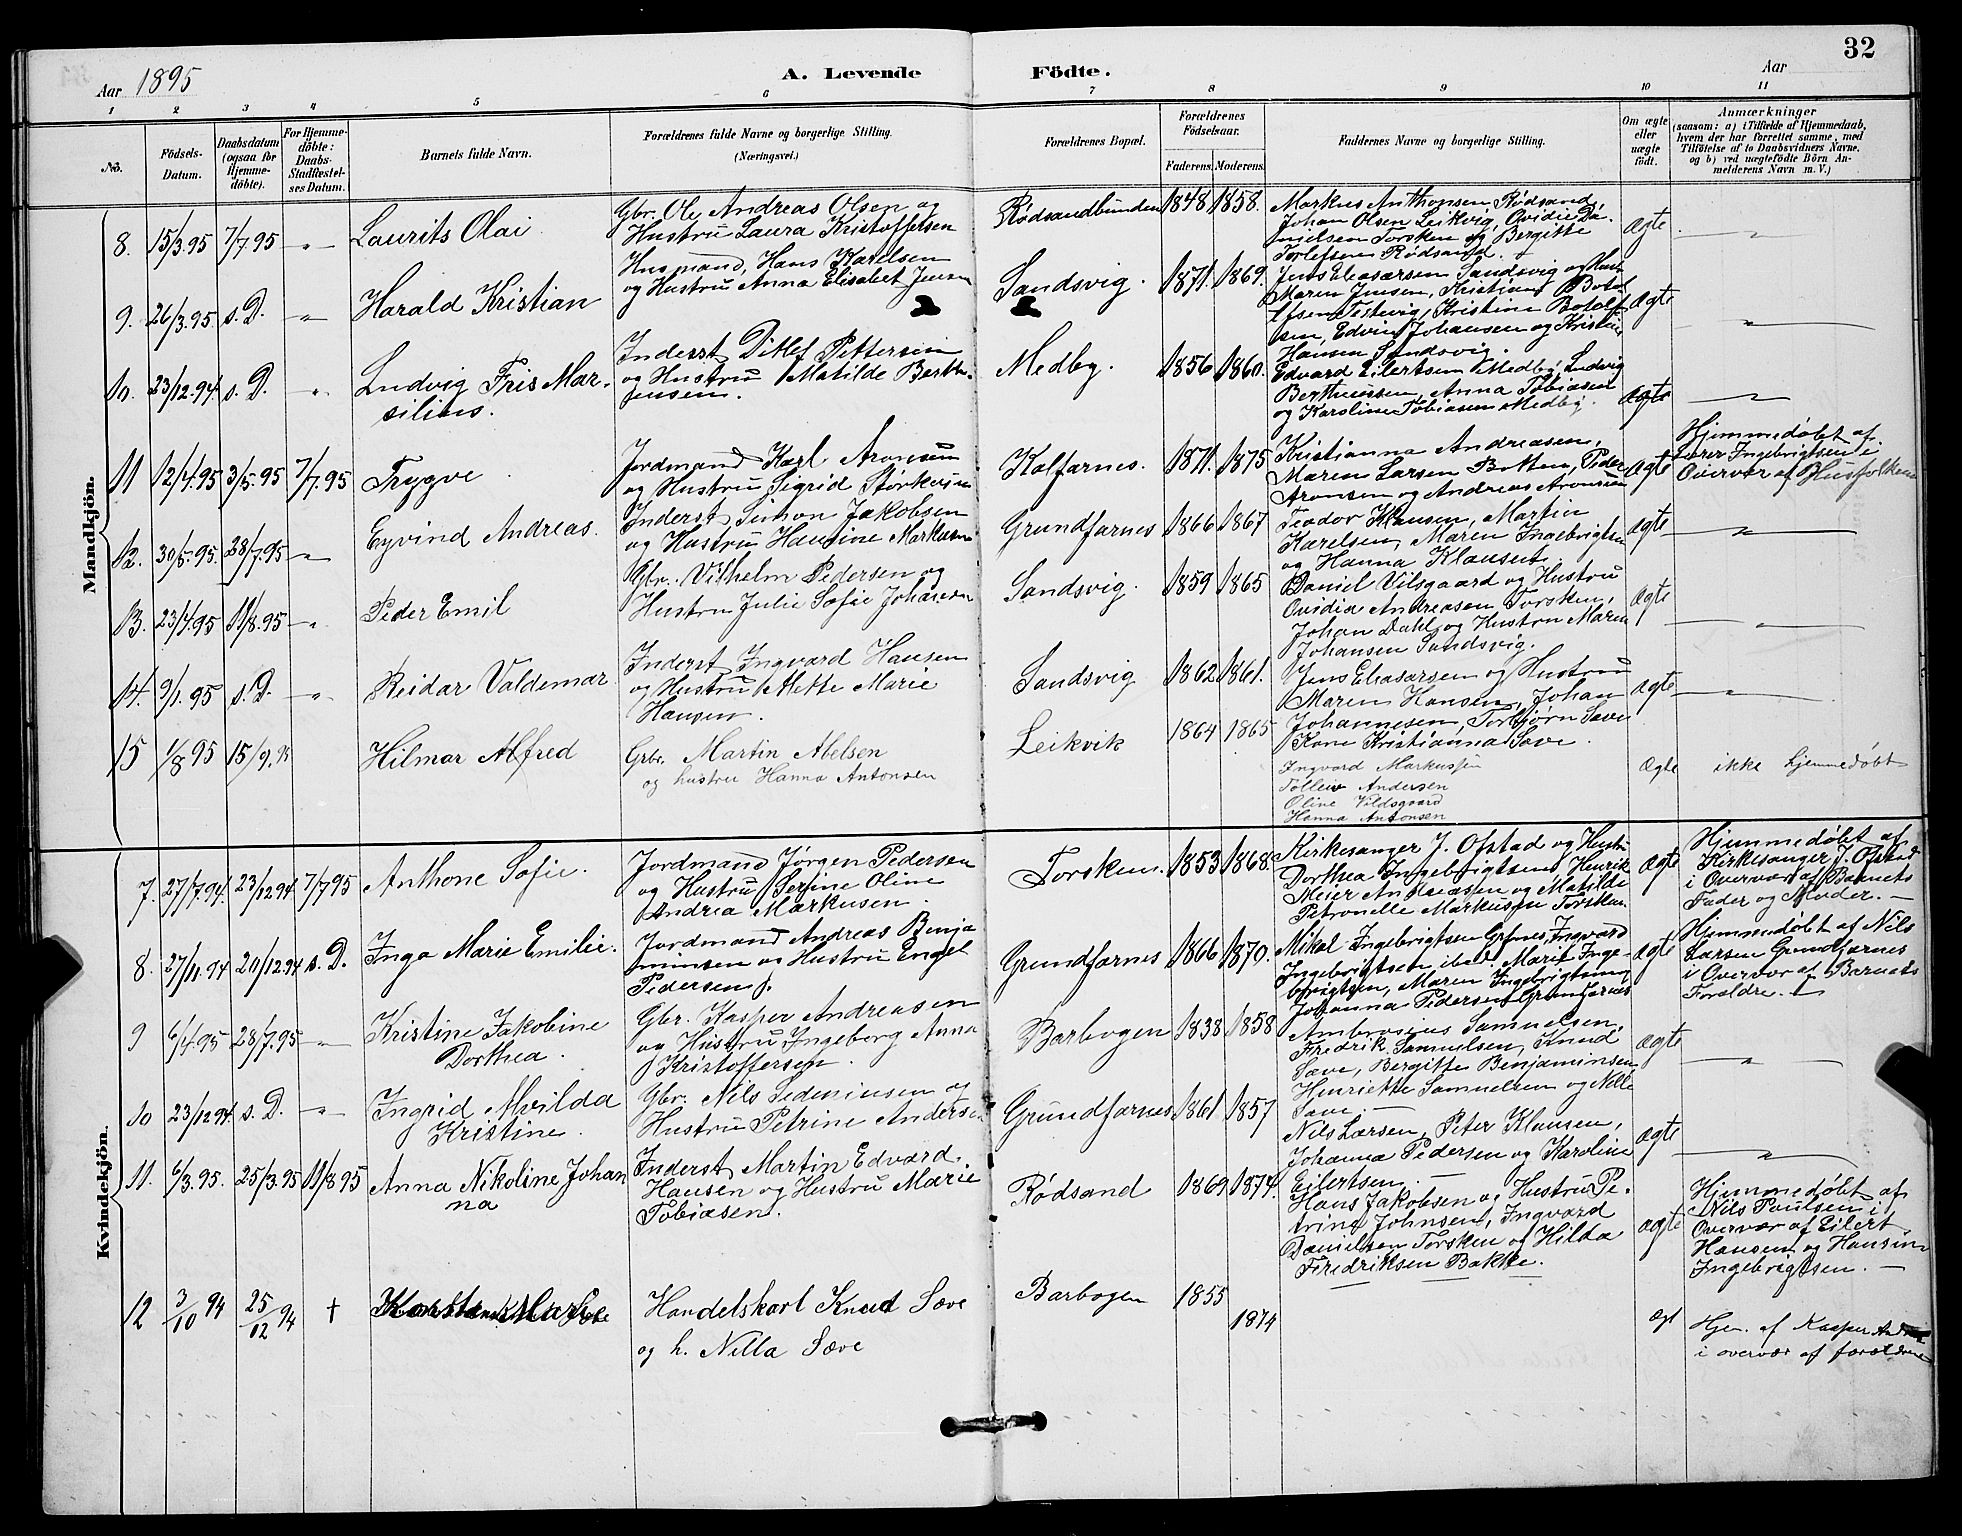 32
Aar 1895
A. Levende Födte.
Aar
1 2 3 4 5 6 7 8 9 10 11
No.
Födsels-Datum.
Daabsdatum (ogsaa for Hjemme-döbte).
For Hjemme-döbte: Daabs-Stadfæstel-ses Datum.
Barnets fulde Navn.
Forældrenes fulde Navne og borgerlige Stilling.
(Næringsvei.)
Forældrenes Bopæl.
Forældrenes Födselsaar.
Faderens. Moderens.
Faddernes Navne og borgerlige Stilling.
Om ægte eller uægte födt.
Anmærkninger
(saasom: a) i Tilfælde af Hjemmedaab,
hvem der har forrettet samme, med
Tilföielse af to Daabsvidners Navne,
og b) ved uægtefödte Börn An-
melderens Navn m. V.)
Mandkjön.
8. 15/3.95 7/7.95 -„- Laurits Olai
Gbr. Ole Andreas Olsen og
Hustru Laura Kristoffersen
Rødsandbunden 1848 1858.
Markus Anthonsen Rødsand,
Johan Olsen Leikvig, Ovidie Da-
nielsen Torsken og Bergitte
Torlefsen Rødsand.
Ægte -„-
9. 26/3.95 s.D. -„- Harald Kristian
Husmand, Hans Karelsen
og Hustru Anna Elisabet Jensen
Sandsvig. 1871. 1869.
Jens Eleasarsen Sandsvig og Hust.
Maren Jensen, Kristian Botol
fsen Teistevig, Kristine Botolf
sen, Edvin Johansen og Kristine
Hansen Sandsvig.
Ægte -„-
10. 23/12.94. s.D. -„- Ludvig Fris Mar-
silius.
Inderst Ditlef Pettersen
og Hustru Matilde Berth-
jensen.
Medby. 1856 1860.
Edvard Eilertsen Medby, Ludvig
Berthiussen, Anna Tobiasen
og Karoline Tobiasen Medby.
ægte -„-
11 12/4.95 3/5.95 7/7.95 Trygve
Jordmand Karl Aronsen
og Hustru Sigrid Størkersen
Kalfarnes. 1871. 1875
Kristianna Andreasen,
Maren Larsen Botten, Peder
Aronsen og Andreas Aronsen
ægte
Hjemmedøbt af
Lærer Ingebrigtsen i
Overvær af Husfolkene
12. 30/5.95. 28/7.95 -„- Eyvind Andreas.
Inderst Simon Jakobsen
og Hustru Hansine Markusen
Grundfarnes 1866 1867
Teodor Klausen, Martin
Karelsen, Maren Ingebrigtsen
og Hanna Klausen.
ægte -„-
13. 23/4.95 11/8.95 -„- Peder Emil
Gbr. Vilhelm Pedersen og
Hustru Julie Sofie Johansen
Sandsvig. 1859 1865
Daniel Vilsgaard og Hustru
Ovidia Andreasen Torsken,
Johan Dahl og Hustru Maren
Johansen Sandsvig.
Ægte -„-
14. 9/1.95 s.D. -„- Reidar Valdemar
Inderst Ingvard Hansen
og Hustru Mette Marie
Hansen.
Sandsvig 1862 1861.
Jens Eleasarsen og Hustru
Maren Hansen, Johan
Johannesen, Torbjørn Save
Kone Kristianna Save.
ægte -„-
15 1/8 95 15/9.95 Hilmar Alfred
Grbr. Martin Abelsen
og hustru Hanna Antonsen
Leikvik 1864 1865
Ingvard Markussen
Tolleiv Andersen
Oline Vildsgaard
Hanna Antonsen
Ægte ikke hjemmedøbt
Kvindekjön.
7. 27/7.94. 23/12.94. 7/7.95 Anthone Sofie.
Jordmand Jørgen Pedersen
og Hustru Serine Oline
Andrea Markusen.
Torsken. 1853 1868.
Kirkesanger J. Ofstad og Hustr.
Dorthea Ingebrigtsen, Henrik
Meier Andreasen og Matilde
Petronelle Markusen Torsken.
ægte
Hjemmedøbt af
Kirkesanger J. Ofstad
i Overvær af Barnets
Fader og Moder. -
8. 27/11.94 20/12.94 s.D. Inga Marie Emilie.
Jordmand Andreas Benja
minsen og Hustru Engel
Pedersen.
Grundfarnes 1866 1870.
Mikal Ingebrigtsen Grfnes, Ingvard
Ingebrigtsen ibd. Marie Inge-
brigtsen, Maren Ingebrigtsen og
Johanna Pedersen Grundfarnes
ægte
Hjemmedøbt af Nils
Larsen Grundfarnes
i Overvær af Barnets
Forældre.
9 6/4.95 28/7.95 -„- Kristine Jakobine
Dorthea.
Gbr. Kasper Andreasen
og Hustru Ingeborg Anna
Kristoffersen.
Barbogen 1838 1858
Ambrosius Samuelsen,
Fredrik Samuelsen, Knud
Save, Bergitte Benjaminsen
Henriette Samuelsen og Nille
Save.
ægte -„-
10 23/12.94. s.D. -„- Ingrid Alvilda
Kristine.
Gbr. Nils Sedeniusen og
Hustru Petrine Andersen
Grundfarnes 1861 1857
Nils Larsen, Peter Klausen,
Johanna Pedersen og Karoline
Eilertsen.
ægte -„-
11. 6/3.95. 25/3.95 11/8.95 Anna Nikoline Johan
na
Inderst Martin Edvard
Hansen og Hustru Marie
Tobiasen.
Rødsand 1869 1874.
Hans Jakobsen og Hustru Pe-
trine Johnsen, Ingvard
Danielsen Torsken og Hilda
Fredriksen Bakke.
ægte
Hjemmedøbt af
Nils Paulsen i
Overvær af Eilert
Hansen og Hansine
Ingebrigtsen. -
12 3/10 94 25/12 94 †
Handelskarl Knut Sæve
og h. Nilla Sæve
Barbogen 1855 1874
ægt
Hjm. af Kasper
i overvær af forældrene